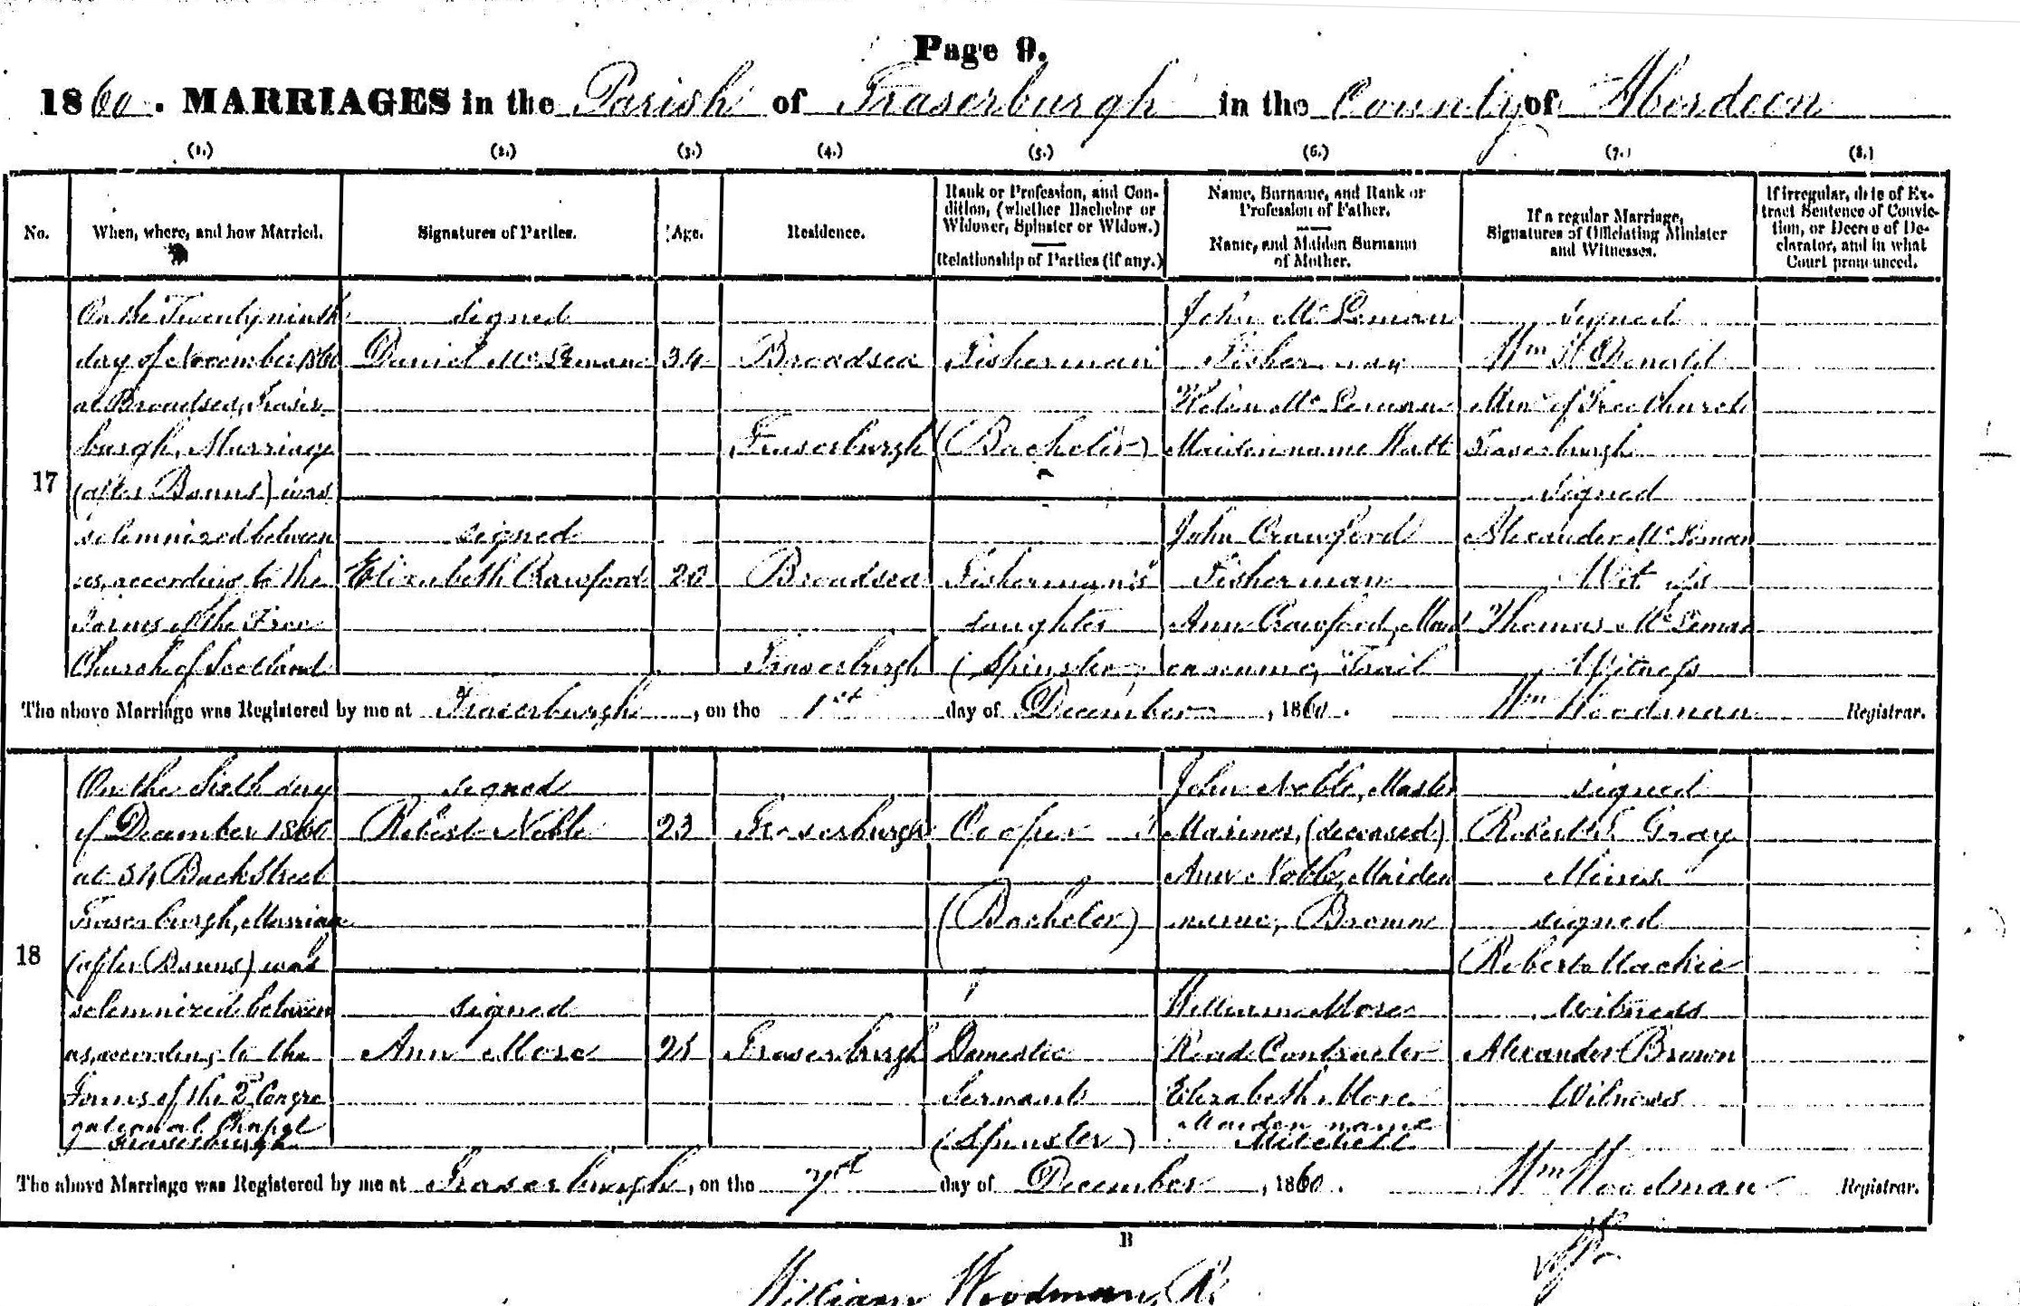 Page 9.
1860. MARRIAGES in the Parish of Fraserburgh in the County of Aberdeen
(1.) (2.) (3.) (4.) (5.) (6.) (7.) (8.)
No.
When, where, and how Married.
Signatures of Parties.
Age.
Residence.
Rank or Profession, and Con-
dition, (whether Bachelor or
Widower, Spinster or Widow.)
Relationship of Parties (if any.)
Name, Surname, and Rank or
Profession of Father.
Name, and Maiden Surname
of Mother.
If a regular Marriage,
Signatures of Officiating Minister
and Witnesses.
If irregular, date of Ex-
tract Sentence of Convic-
tion, or Decree of De-
clarator, and in what
Court pronounced.
17
On the Twenty ninth
day of November 1860
at Broadsea, Fraser
burgh, Marriage
(after Banns) was
solemnized between
us, according to the
Forms of the Free
Church of Scotland
signed
Daniel McLeman
signed
Elizabeth Crawford
34
20
Broadsea
Fraserburgh
Broadsea
Fraserburgh
Fisherman
(Bachelor)
Fisherman's
daughter
(Spinster)
John McLeman
Fisherman
Helen McLeman
Maiden name Watt
John Crawford
Fisherman
Ann Crawford, Maid
en name, Trail
signed
Wm
Minr of Free Church
Fraserburgh
signed
Alexander McLeman
Witness
Thomas McLeman
Witness
The above Marriage was Registered by me at Fraserburgh, on the 1st day of December, 1860. Wm Woodman Registrar.
18
On the Sixth day
of December 1860
at 34 Back Street
Fraserburgh, Marriage
(after Banns) was
solemnized between
us, according to the
Forms of the 2d Congre
gational Chapel
Fraserburgh
signed
Robert Noble
signed
Ann More
23
25
Fraserburgh
Fraserburgh
Cooper
(Bachelor)
Domestic
Servant
(Spinster)
John Noble, Master
Mariner, (deceased)
Ann Noble, Maiden
name, Brown
William More
Road Contractor
Elizabeth More
Maiden name
Mitchell
signed
Robert Gray
Minr
signed
Robert Mackie
Witness
Alexander Brown
Witness
The above Marriage was Registered by me at Fraserburgh, on the 7th day of December, 1860. Wm Woodman Registrar.
B
William Woodman, R.